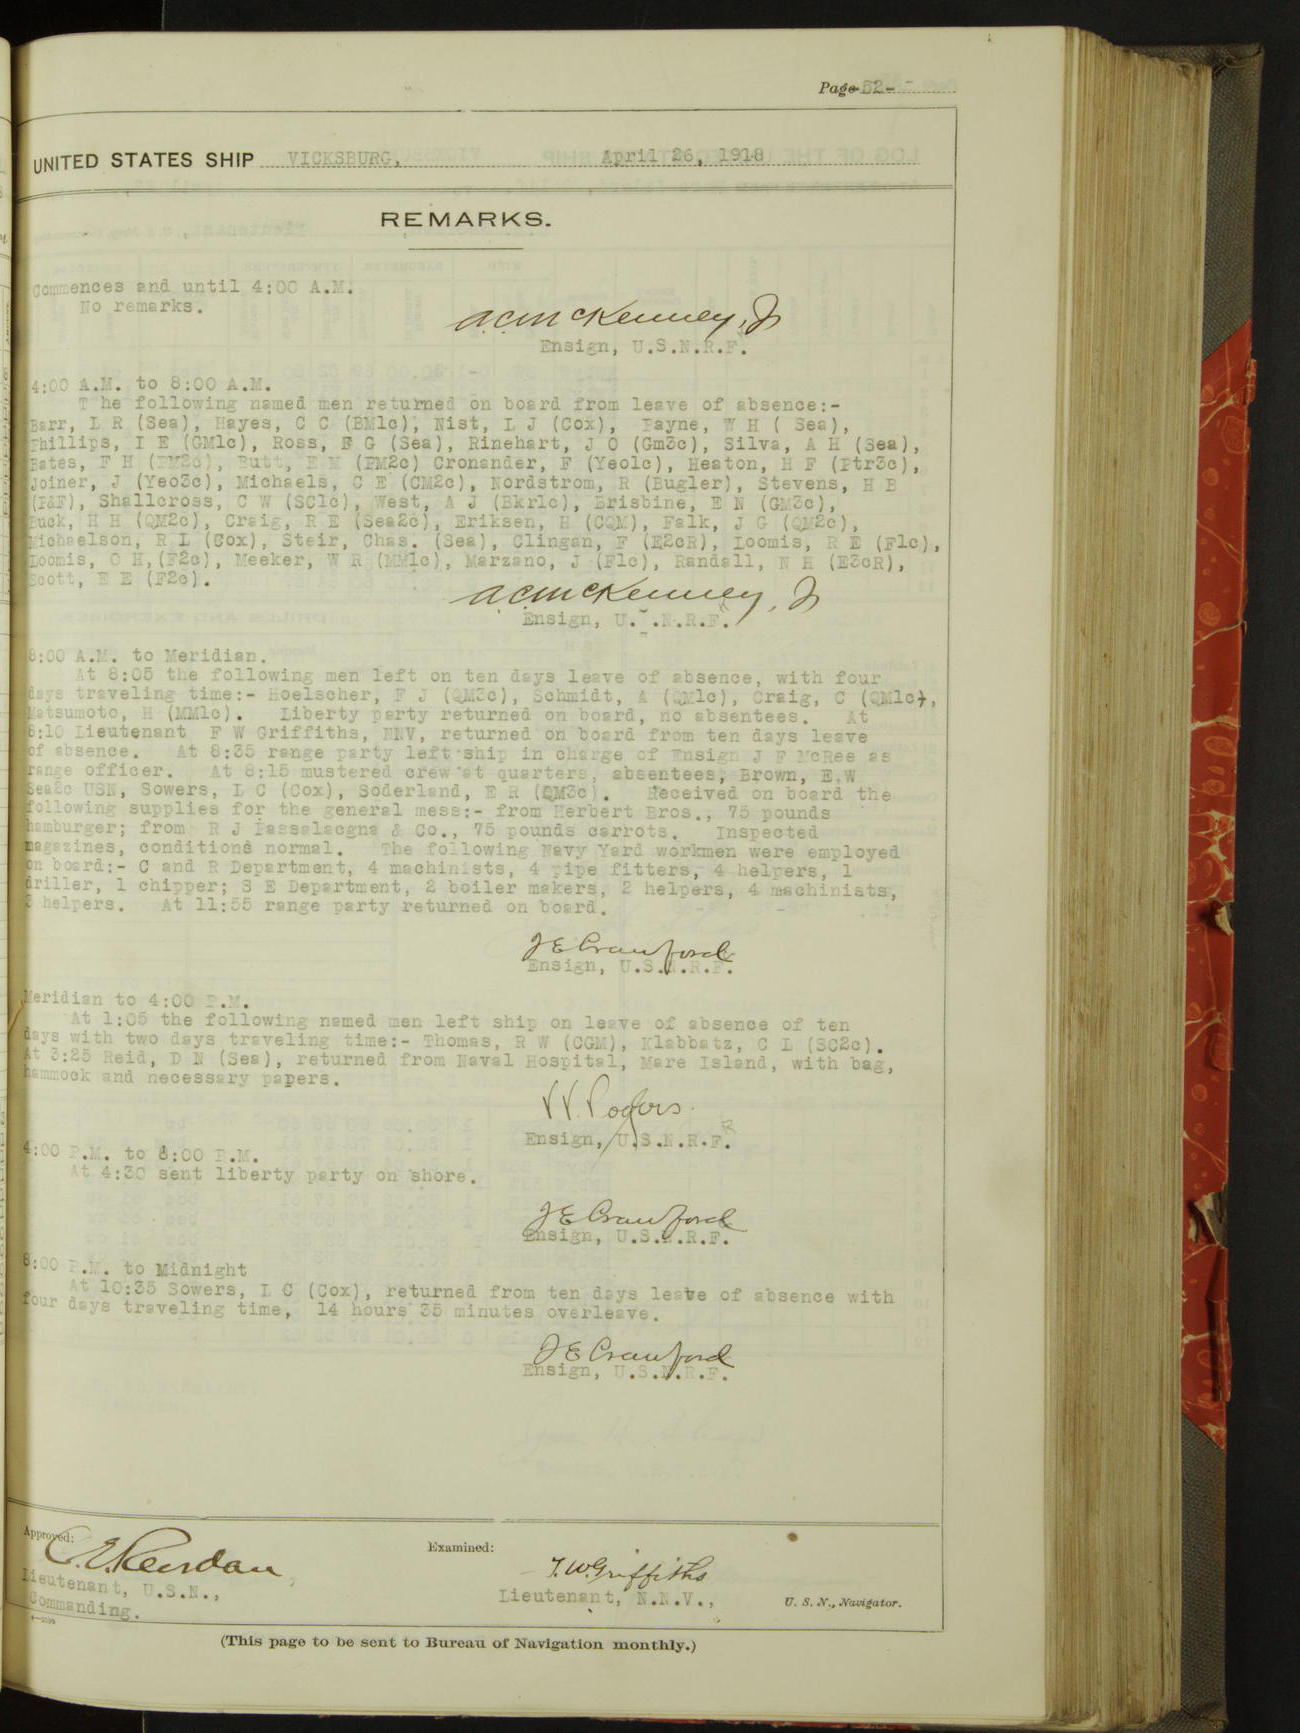 Page -52-
UNITED STATES SHIP VICKSBURG, April 26, 1918
REMARKS.
Commences and until 4:00 A.M.
No remarks.
A.C. McKenney, Jr
Ensign, U.S.N.R.F.
4:00 A.M. to 8:00 A.M.
T he following named men returned on board from leave of absence:-
Barr, L R (Sea), Hayes, C C (BM1c), Nist, L J (Cox), Payne, W H ( Sea),
Phillips, I E (GM1c), Ross, F G (Sea), Rinehart, J O (Gm3c), Silva, A H (Sea),
Bates, F H (PM2c), Butt, E M (PM2c) Cronander, F (Yeo1c), Heaton, H F (Ptr3c),
Joiner, J (Yeo3c), Michaels, C E (CM2c), Nordstrom, R (Bugler), Stevens, H B
(P&F), Shallcross, C W (SC1c), West, A J (Bkr1c), Brisbine, E N (GM3c),
Buck, H H (QM2c), Craig, R E (Sea2c), Eriksen, H (CQM), Falk, J G (QM2c),
Michaelson, R L (Cox), Steir, Chas. (Sea), Clingan, F (E2cR), Loomis, R E (F1c),
Loomis, O H, (F2c), Meeker, W R (MM1c), Marzano, J (F1c), Randall, N H (E3cR),
Scott, E E (F2c).
A.C. McKenney, Jr
Ensign, U.S.N.R.F.
8:00 A.M. to Meridian.
At 8:05 the following men left on ten days leave of absence, with four
days traveling time:- Hoelscher, F J (QM3c), Schmidt, A (QM1c), Craig, C (QM1c),
Matsumoto, H (MM1c). Liberty party returned on board, no absentees. At
8:10 Lieutenant F W Griffiths, NNV, returned on board from ten days leave
of absence. At 8:35 range party left ship in charge of Ensign J F McRee as
range officer. At 8:15 mustered crew at quarters, absentees, Brown, E.W
Sea2c USN, Sowers, L C (Cox), Soderland, E R (QM3c). Received on board the
following supplies for the general mess:- from Herbert Bros., 75 pounds
hamburger; from R J Passalacgna & Co., 75 pounds carrots. Inspected
magazines, conditions normal. The following Navy Yard workmen were employed
on board:- C and R Department, 4 machinists, 4 pipe fitters, 4 helpers, 1
driller, 1 chipper; S E Department, 2 boiler makers, 2 helpers, 4 machinists,
helpers. At 11:55 range party returned on board.
J E Crawford
Ensign, U.S.N.R.F.
Meridian to 4:00 P.M.
At 1:05 the following named men left ship on leave of absence of ten
days with two days traveling time:- Thomas, R W (CGM), Klabbatz, C L (SC2c).
At 3:25 Reid, D N (Sea), returned from Naval Hospital, Mare Island, with bag,
hammock and necessary papers.
Rogers
Ensign, U.S.N.R.F.
4:00 P.M. to 8:00 P.M.
At 4:30 sent liberty party on shore.
J E Crawford
Ensign, U.S.N.R.F.
8:00 P.M. to Midnight
At 10:35 Sowers, L C (Cox), returned from ten days leave of absence with
four days traveling time, 14 hours 35 minutes overleave.
J E Crawford
Ensign, U.S.N.R.F.
Approved:
Examined:
F. W. Griffiths
Lieutenant, U.S.N.,
Commanding.
Lieutenant, N.N.V.,
U. S. N., Navigator.
(This page to be sent to Bureau of Navigation monthly.)